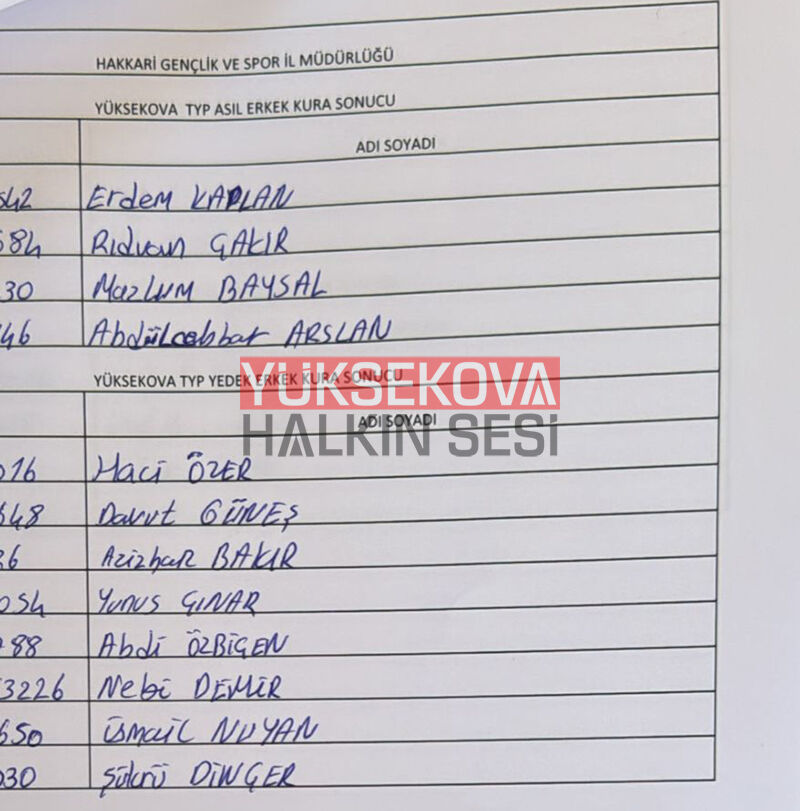 HAKKARİ GENÇLİK VE SPOR İL MÜDÜRLÜĞÜ
YÜKSEKOVA TYP ASIL ERKEK KURA SONUCU
ADI SOYADI
542 Erdem KAPLAN
584 Rıdvan ÇAKIR
30 Mazlum BAYSAL
46 Abdülcebbar ARSLAN
YÜKSEKOVA TYP YEDEK ERKEK KURA SONUCU
YÜKSEKOVA
ADI SOYADI
HALKIN SESİ
016 Haci ÖZER
648 Davut GÜNEŞ
26 BAKIR
054 Yunus ÇINAR
788 Abdi ÖZBİÇEN
3226 Nebi DEMİR
650 İsmail NUYAN
030 Şükrü DİNÇER